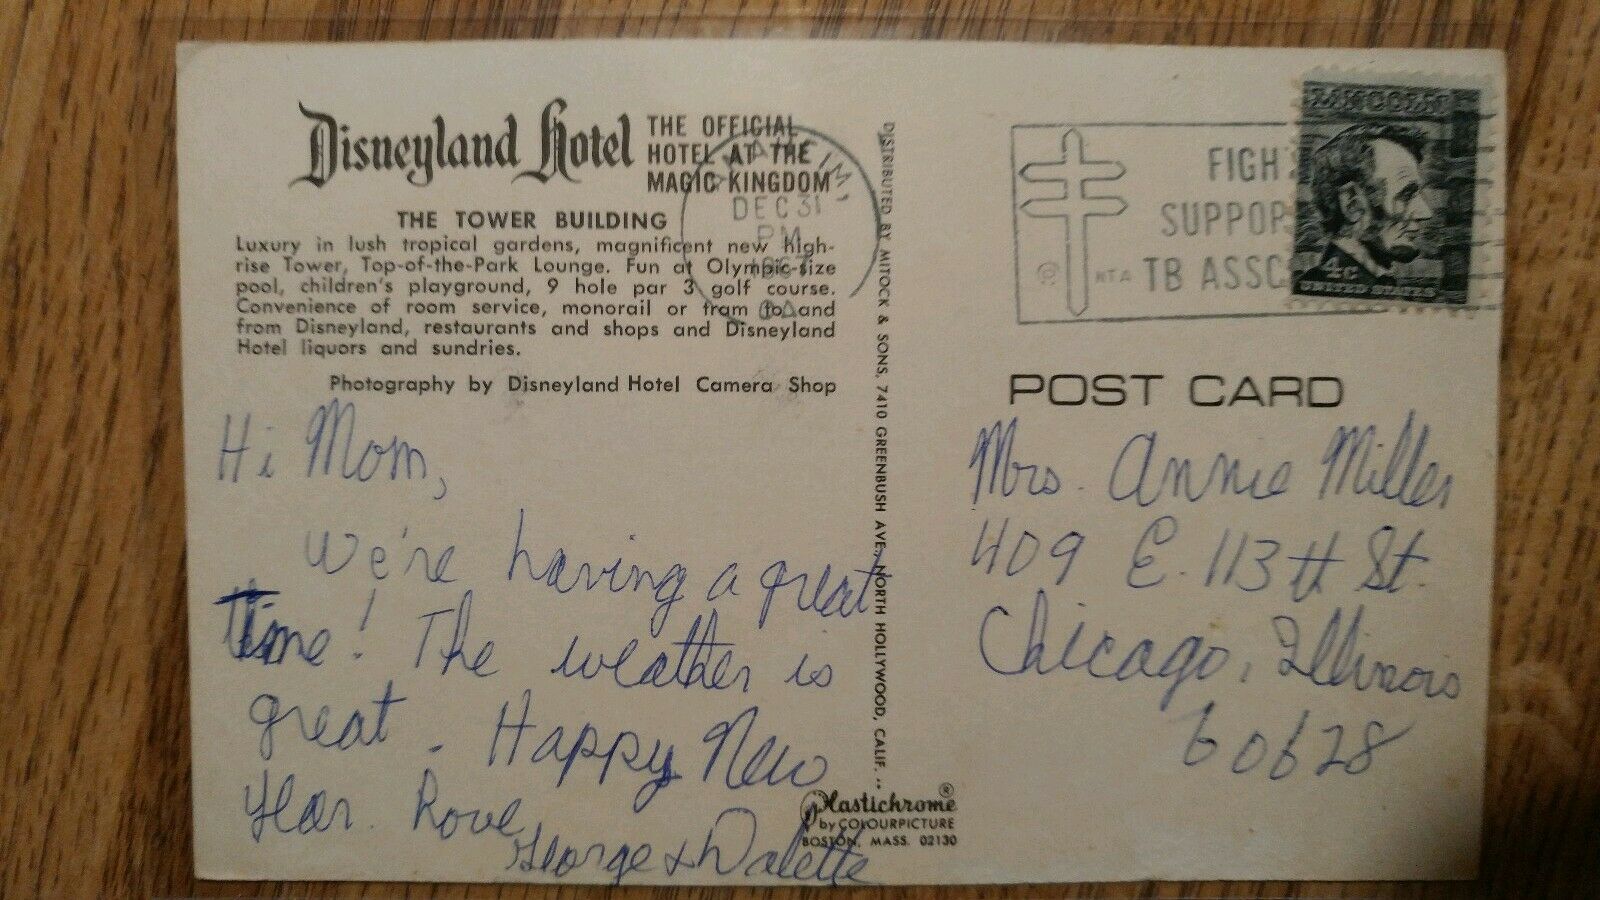 Disneyland Hotel
THE OFFICIAL
HOTEL AT THE
MAGIC KINGDOM
THE TOWER BUILDING
Luxury in lush tropical gardens, magnificent new high-
rise Tower, Top-of-the-Park Lounge. Fun at Olympic-size
pool, children's playground, 9 hole par 3 golf course.
Convenience of room service, monorail or tram to and
from Disneyland, restaurants and shops and Disneyland
Hotel liquors and sundries.
Photography by Disneyland Hotel Camera Shop
ANAHEIM,
DEC 31
PM
1967
CA
Hi Mom,
We're having a great
time! The weather is
great. Happy New
Year. Love,
George & Dalette
DISTRIBUTED BY MITOCK & SONS, 7410 GREENBUSH AVE., NORTH HOLLYWOOD, CALIF.
Plastichrome®
by COLOURPICTURE
BOSTON, MASS. 02130
FIGH
SUPPOR
NTA TB ASSC
LINCOLN
4c
UNITED STATES
POST CARD
Mrs. Annie Miller
409 E. 113th St.
Chicago, Illinois
60628